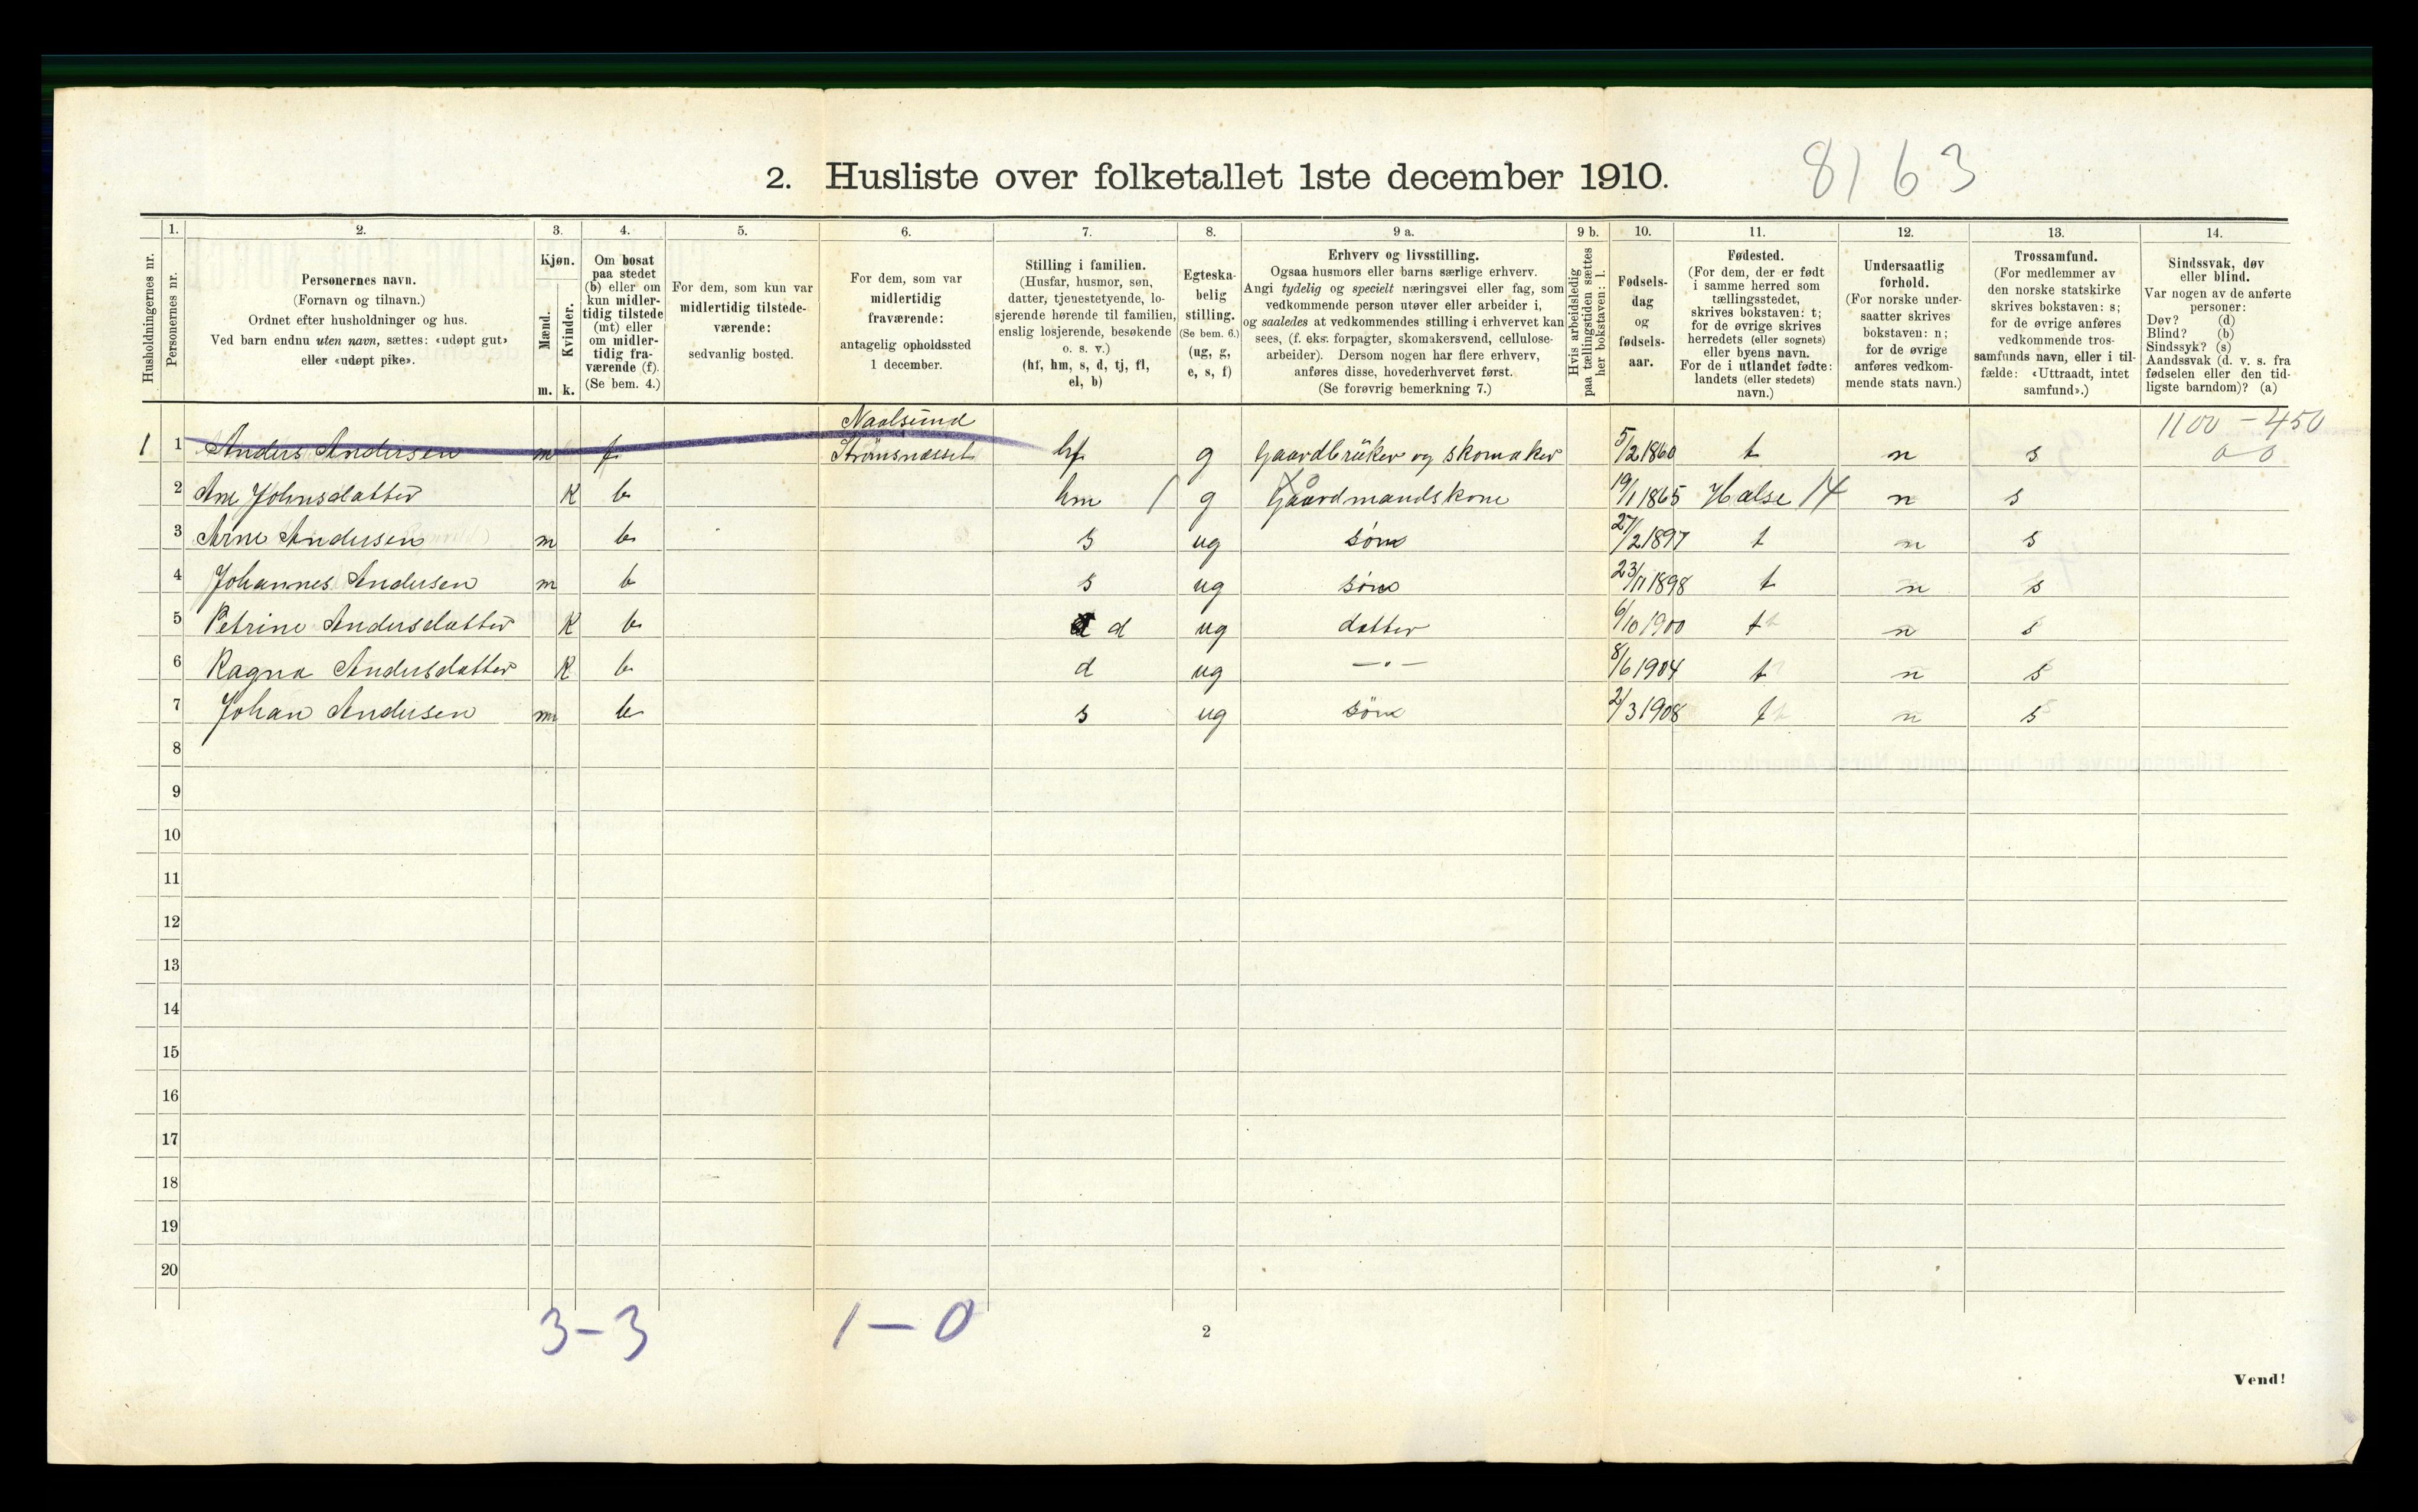 2. Husliste over folketallet 1ste december 1910.
8163
Husholdningernes nr.
1.
Personernes nr.
2.
Personernes navn.
(Fornavn og tilnavn.)
Ordnet efter husholdninger og hus.
Ved barn endnu uten navn, sættes: «udøpt gut»
eller «udøpt pike».
3.
Kjøn.
Mænd.
m.
Kvinder.
k.
4.
Om bosat
paa stedet
(b) eller om
kun midler-
tidig tilstede
(mt) eller
om midler-
tidig fra-
værende (f).
(Se bem. 4.)
5.
For dem, som kun var
midlertidig tilstede-
værende:
sedvanlig bosted.
6.
For dem, som var
midlertidig
fraværende:
antagelig opholdssted
1 december.
7.
Stilling i familien.
(Husfar, husmor, søn,
datter, tjenestetyende, lo-
sjerende hørende til familien,
enslig losjerende, besøkende
o. s. v.)
(hf, hm, s, d, tj, fl,
el, b)
8.
Egteska-
belig
stilling.
(Se bem. 6.)
(ug, g,
e, s, f)
9 a.
Erhverv og livsstilling.
Ogsaa husmors eller barns særlige erhverv.
Angi tydelig og specielt næringsvei eller fag, som
vedkommende person utøver eller arbeider i,
og saaledes at vedkommendes stilling i erhvervet kan
sees, (f. eks. forpagter, skomakersvend, cellulose-
arbeider). Dersom nogen har flere erhverv,
anføres disse, hovederhvervet først.
(Se forøvrig bemerkning 7.)
9 b.
Hvis arbeidsledig
paa tællingstiden sættes
her bokstaven: l.
10.
Fødsels-
dag
og
fødsels-
aar.
11.
Fødested.
(For dem, der er født
i samme herred som
tællingsstedet,
skrives bokstaven: t;
for de øvrige skrives
herredets (eller sognets)
eller byens navn.
For de i utlandet fødte:
landets (eller stedets)
navn.)
12.
Undersaatlig
forhold.
(For norske under-
saatter skrives
bokstaven: n;
for de øvrige
anføres vedkom-
mende stats navn.)
13.
Trossamfund.
(For medlemmer av
den norske statskirke
skrives bokstaven: s;
for de øvrige anføres
vedkommende tros-
samfunds navn, eller i til-
fælde: «Uttraadt, intet
samfund».)
14.
Sindssvak, døv
eller blind.
Var nogen av de anførte
personer:
Døv? (d)
Blind? (b)
Sindssyk? (s)
Aandssvak (d. v. s. fra
fødselen eller den tid-
ligste barndom)? (a)
Naalsund 1100 - 450
1 1 Anders Andersen m f Strömsnæsset hf g Gaardbrüker og skomaker 5/2 1860 t n s 0 0
2 Ane Johnsdatter K b hm / g Gaardmandskone 19/1 1865 Halse 14 n s
3 Arne Andersen m b s ug søn 27/2 1897 t n s
4 Johannes Andersen m b s ug søn 23/11 1898 t n s
5 Petrine Andersdatter K b d ug datter 6/10 1900 t n s
6 Ragna Andersdatter K b d ug —"— 8/6 1904 t n s
7 Johan Andersen m b s ug søn 2/3 1908 t n s
8
9
10
11
12
13
14
15
16
17
18
19
20
3-3 1-0
2
Vend!